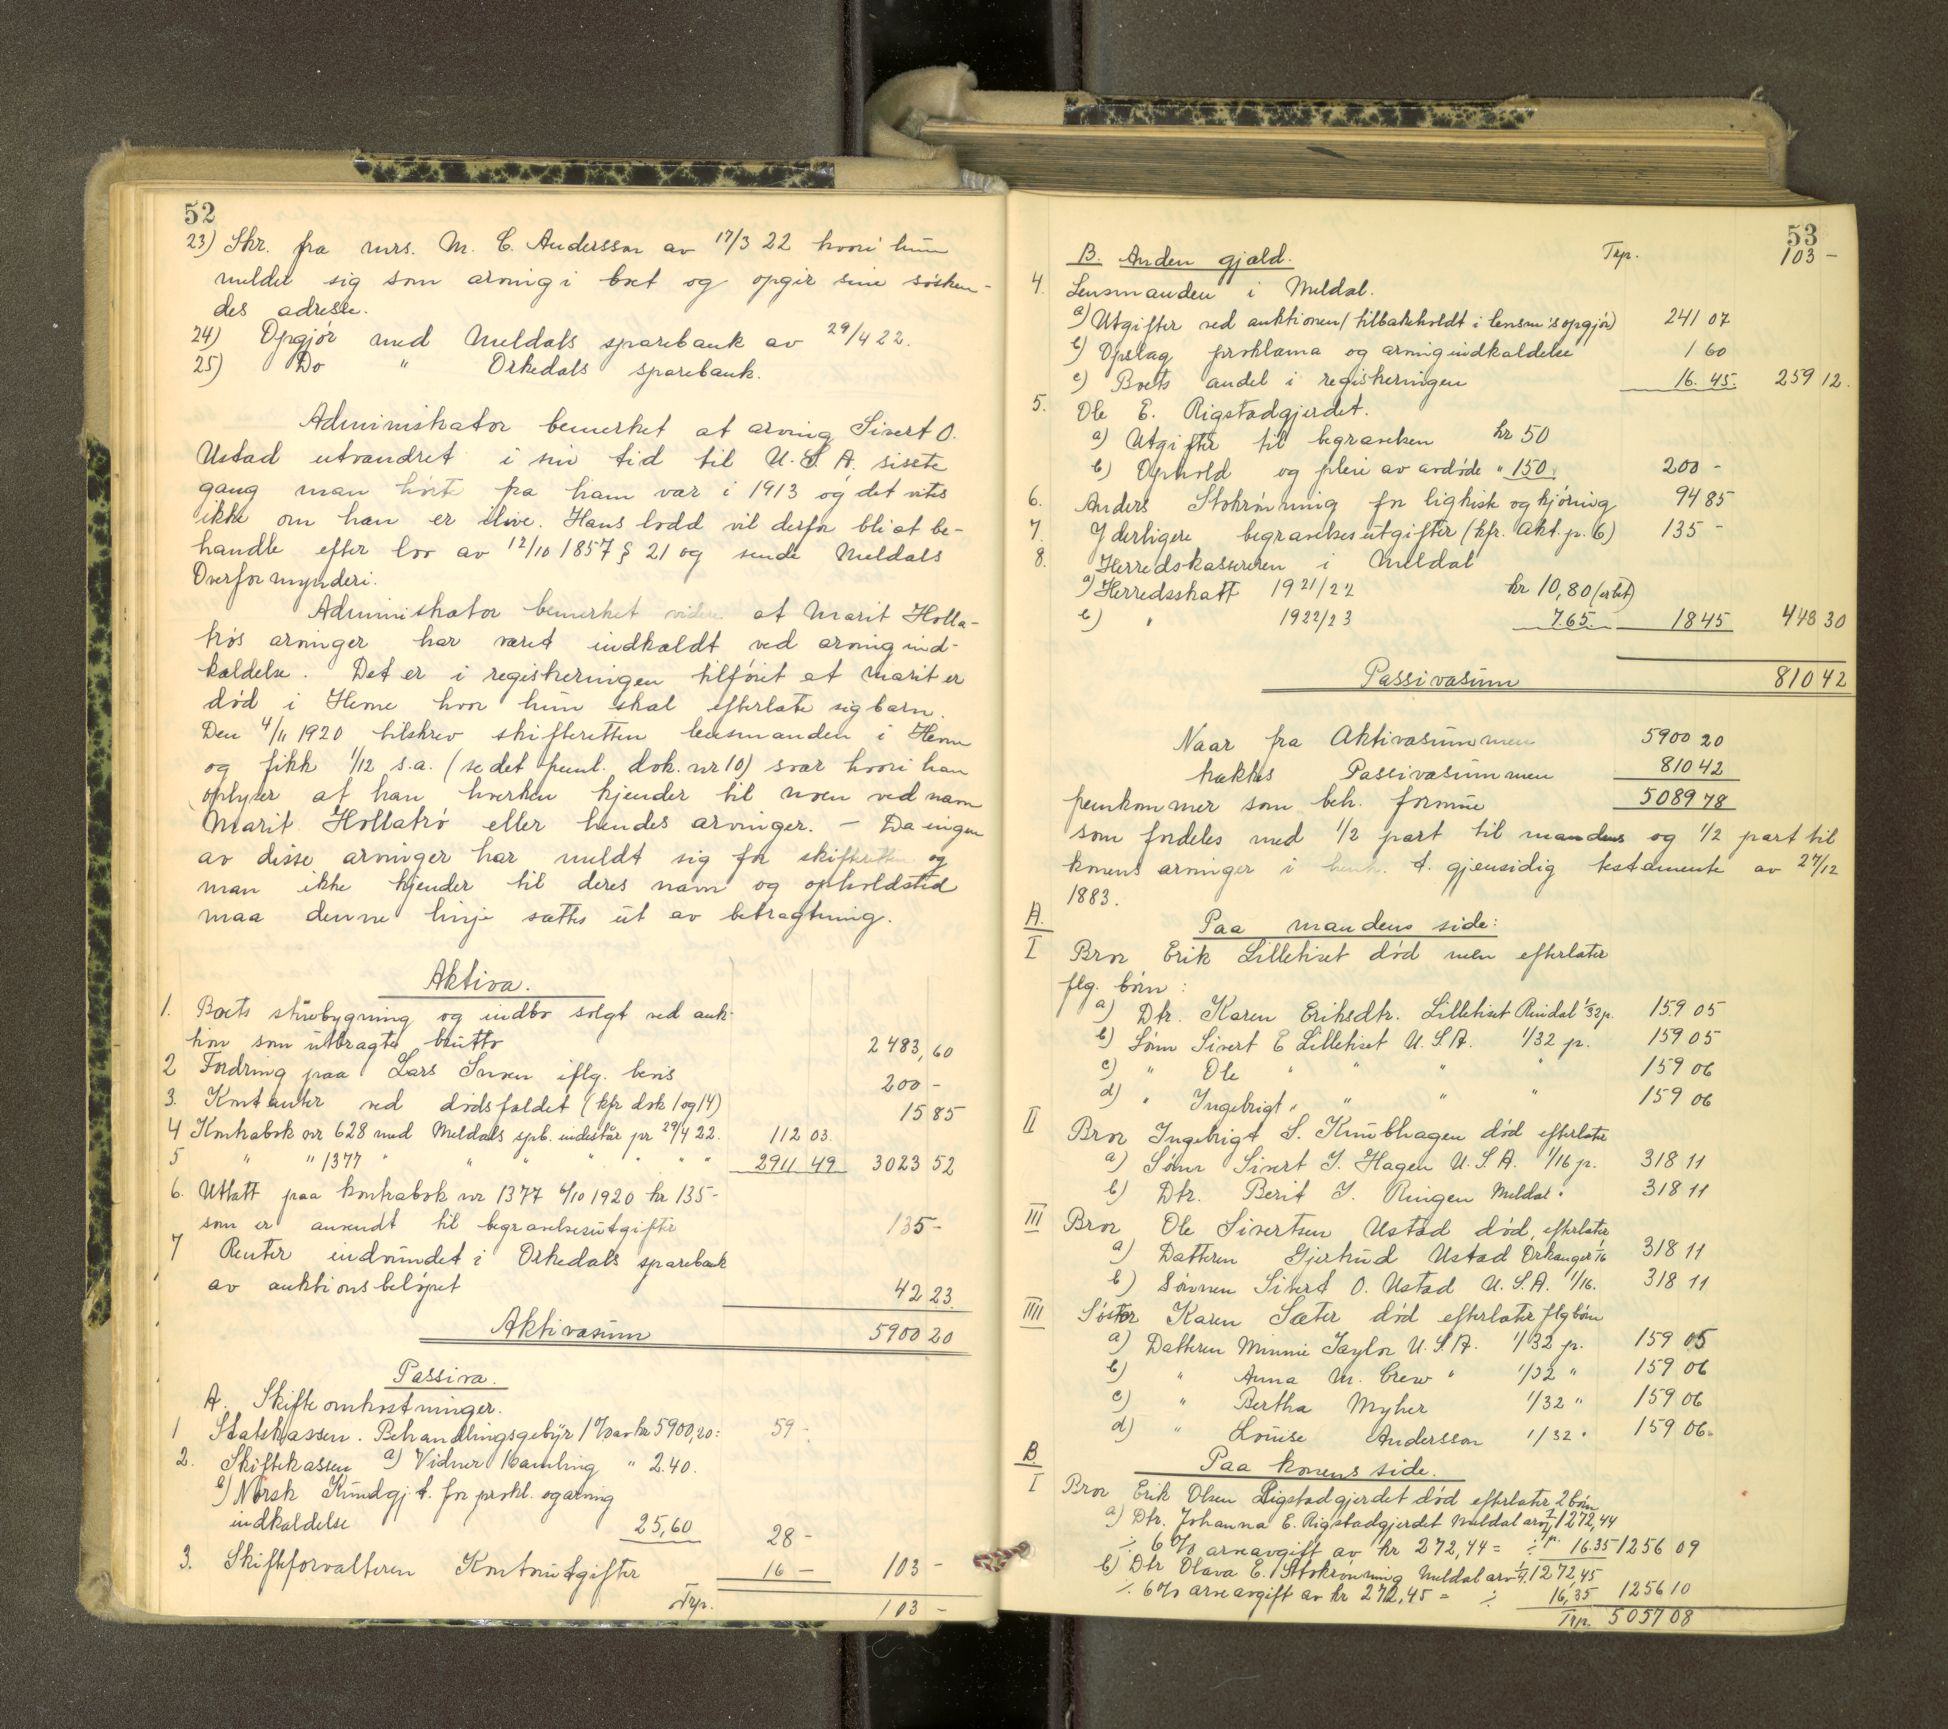 52
23) Skr. fra mrs. M. C. Andersson av 17/3 22 hvori hun
melder sig som arving i boet og opgir sine søsken-
des adresse.
24) Opgjør med Meldals sparebank av 29/4 22.
25) Do " Orkedals sparebank.
Administrator bemerket at arving Sivert O.
Ustad utvandret i sin tid til U.S.A. sisste
gang man hørte fra ham var i 1913 og det vites
ikke om han er ilive. Hans lodd vil derfor bli at be-
handle efter lov av 12/10 1857 § 21 og sende Meldals
Overformynderi.
Administrator bemerket videre at Marit Holla-
trøs arvinger har været indkaldt ved arvingind-
kaldelse. Det er i registreringen tilføiet at Marit er
død i Hevne hvor hun skal efterlate sig barn.
Den 4/11 1920 tilskrev skifteretten lensmanden i Hevne
og fikk 1/12 s.a. (se det freml. dok. nr 10) svar hvori han
oplyser at han hverken kjender til noen ved navn
Marit Hollatrø eller hendes arvinger. — Da ingen
av disse arvinger har meldt sig for skifteretten og
man ikke kjender til deres navn og opholdsted
maa denne linje sættes ut av betragtning.
Aktiva.
1. Boets stuebygning og indbo solgt ved auk-
tion som utbragte brutto 2483,60
2 Fordring paa Lars Snoen iflg. bevis 200 -
3. Kontanter ved dødsfaldet (kfr dok 1 og 14) 15 85
4 Kontrabok nr 628 med Meldals spb. indestår pr 29/4 22. 112 03.
5 " " 1377 " " " " " " " 2911 49 3023 52
6. Uttatt paa kontrabok nr 1377 6/10 1920 kr 135-
som er anvendt til begravelsesutgifter 135-
7 Renter indvundet i Orkedals sparebank
av auktionsbeløpet 42 23.
Aktivasum 5900 20
Passiva.
A. Skifteomkostninger.
1 Statskassen. Behandlingsgebyr 1% av kr 5900,20: 59 -
2. Skiftekassen a) Vidner 1 samling " 2.40.
b) Norsk Kundgj. t. for prokl. og arving
indkaldelse 25,60 28 -
3. Skifteforvalteren Kontorutgifter 16 — 103 -
Trp. 103 -
53
B. Anden gjæld. Trp. 103 -
4. Lensmanden i Meldal.
a) Utgifter ved auktionen (tilbakeholdt i lensm's opgjør) 241 07
b) Opslag proklama og arvingindkaldelse 1 60
c) Boets andel i registreringen 16. 45. 259 12.
5. Ole E. Rigstadgjerdet.
a) Utgifter til begravelsen kr 50
b) Ophold og pleie av avdøde " 150. 200 -
6. Anders Stokrønning for likkiste og kjøring 94 85
7. Yderligere begravelsesutgifter (kfr. Akt. p. 6) 135 -
8. Herredskassereren i Meldal
a) Herredsskatt 1921/22 kr 10,80 (erlet)
b) " 1922/23 7.65. 18 45 448 30
Passivasum 810 42
Naar fra Aktivasummen 5900 20
trækkes Passivasummen 810 42
fremkommer som beh. formue 5089 78
som fordeles med 1/2 part til mandens og 1/2 part til
konens arvinger i henh. t. gjensidig testamente av 27/12
1883.
A. Paa mandens side:
I Bror Erik Lilletiset død men efterlater
flg. børn:
a) Dtr. Karen Eriksdtr. Lilletiset Rindal 1/32 p. 159 05
b) Sønn Sivert E Lilletiset U.S.A. 1/32 p. 159 05
c) " Ole " " " " 159 06
d) " Ingebrigt " " " " 159 06
II Bror Ingebrigt S. Knubhagen død efterlater
a) Sønn Sivert I. Hagen U.S.A. 1/16 p. 318 11
b) Dtr. Berit I. Ringen Meldal " 318 11
III Bror Ole Sivertsen Ustad død, efterlater
a) Datteren Gjertrud Ustad Orkanger 1/16 318 11
b) Sønnen Sivert O. Ustad U.S.A. 1/16. 318 11
IIII Søster Karen Sæter død efterlater flg børn
a) Datteren Minnie Taylor U.S.A. 1/32 p. 159 05
b) " Anna M. Crew " 1/32 " 159 06
c) " Bertha Myher 1/32 " 159 06
d) " Louise Andersson 1/32 " 159 06.
B Paa konens side.
I Bror Erik Olsen Rigstadgjerdet død efterlater 2 børn
a) Dtr. Johanna E. Rigstadgjerdet Meldal arv 1/4 p. 1272,44
÷ 6% arveavgift av kr 272,44 = ÷ 16.35 1256 09
b) Dtr Olava E. Stokrønning Meldal arv 1/4. 1272,45
÷ 6% arveavgift av kr 272,45 = ÷ 16,35 1256 10
Trp. 5057 08